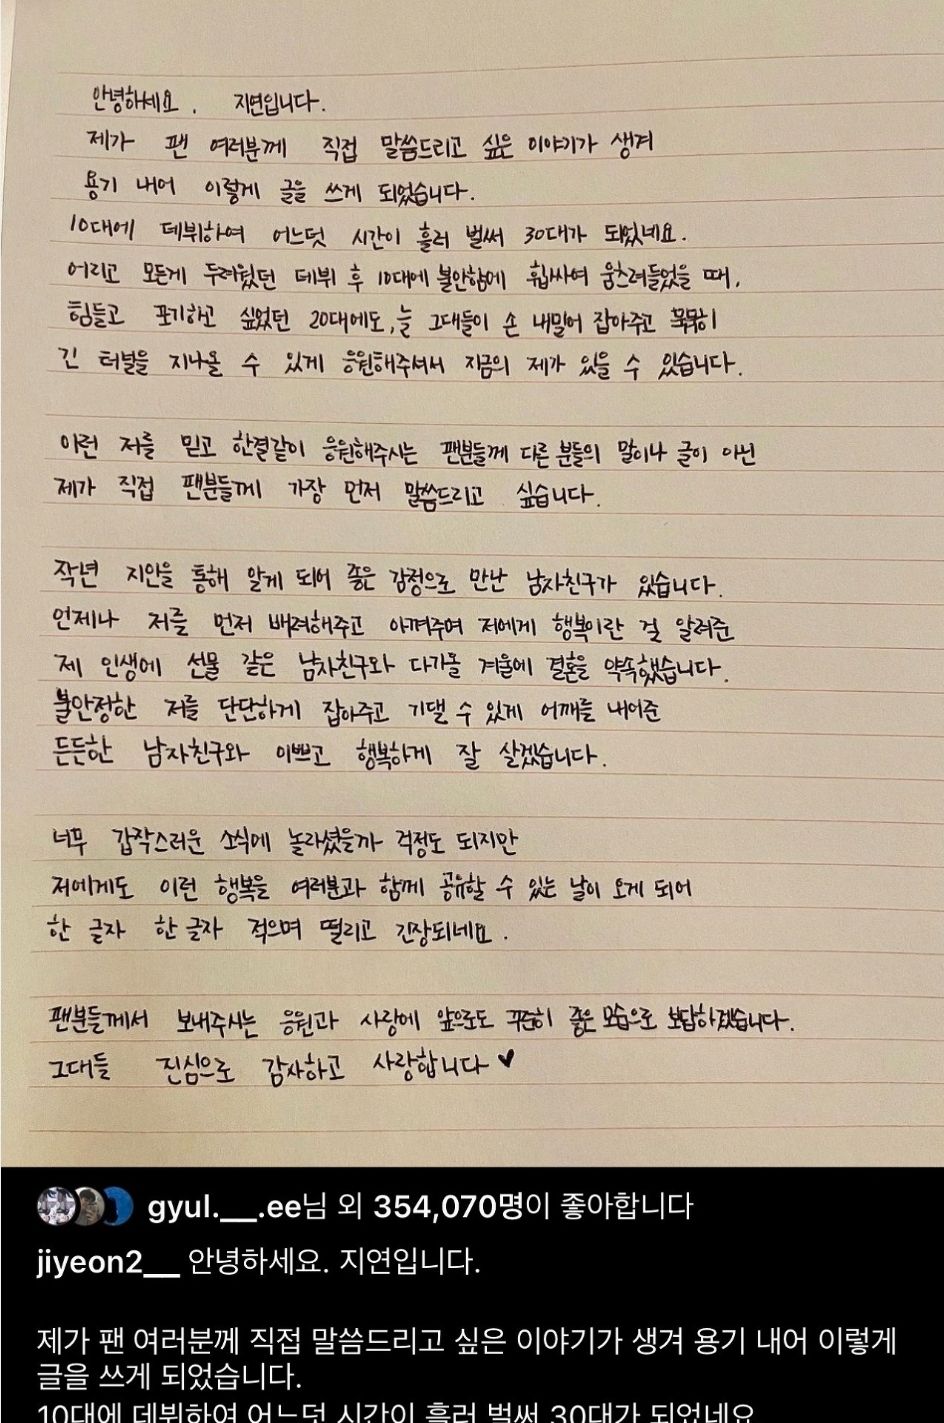 안녕하세요. 지연입니다.
제가 팬 여러분께 직접 말씀드리고 싶은 이야기가 생겨
용기 내어 이렇게 글을 쓰게 되었습니다.
10대에 데뷔하여 어느덧 시간이 흘러 벌써 30대가 되었네요.
어리고 모든게 두려웠던 데뷔 후 10대에 불안함에 휩싸여 움츠려들었을 때,
힘들고 포기하고 싶었던 20대에도, 늘 그대들이 손 내밀어 잡아주고 묵묵히
긴 터널을 지나올 수 있게 응원해주셔서 지금의 제가 있을 수 있습니다.
이런 저를 믿고 한결같이 응원해주시는 팬분들께 다른 분들의 말이나 글이 아닌
제가 직접 팬분들께 가장 먼저 말씀드리고 싶습니다.
작년 지인을 통해 알게 되어 좋은 감정으로 만난 남자친구가 있습니다.
언제나 저를 먼저 배려해주고 아껴주며 저에게 행복이란 걸 알려준
제 인생에 선물 같은 남자친구와 다가올 겨울에 결혼을 약속했습니다.
불안정한 저를 단단하게 잡아주고 기댈 수 있게 어깨를 내어준
든든한 남자친구와 이쁘고 행복하게 잘 살겠습니다.
너무 갑작스러운 소식에 놀라셨을까 걱정도 되지만
저에게도 이런 행복을 여러분과 함께 공유할 수 있는 날이 오게 되어
한 글자 한 글자 적으며 떨리고 긴장되네요.
팬분들께서 보내주시는 응원과 사랑에 앞으로도 꾸준히 좋은 모습으로 보답하겠습니다.
그대들 진심으로 감사하고 사랑합니다♥
gyul.___.ee님 외 354,070명이 좋아합니다
jiyeon2__ 안녕하세요. 지연입니다.
제가 팬 여러분께 직접 말씀드리고 싶은 이야기가 생겨 용기 내어 이렇게
글을 쓰게 되었습니다.
10대에 데뷔하여 어느덧 시간이 흘러 벌써 30대가 되었네요